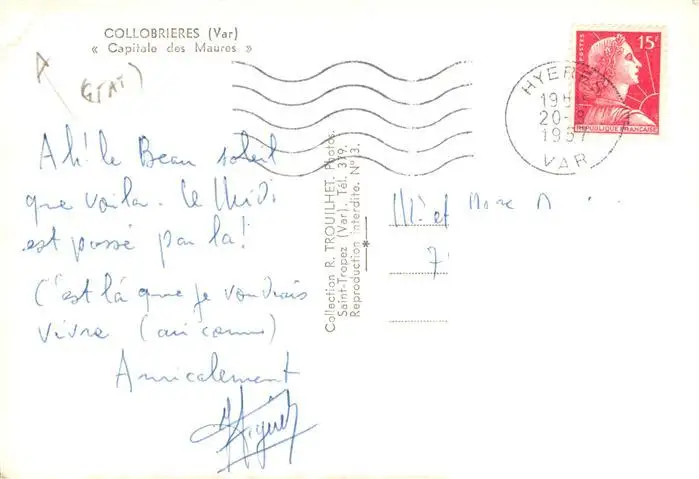 COLLOBRIERES (Var)
« Capitale des Maures »
(ETAT)
Ah! le Beau soleil
que voila. Le Midi
est passé par la!
C'est là que je voudrais
vivre (
Amicalement
Collection R. TROUILHET, Photos.
Saint-Tropez (Var). Tél. 319.
Reproduction interdite. N° 3.
HYERES
19
20-8
1957
VAR
POSTES
15F
REPUBLIQUE FRANÇAISE
Mr et Mme
7